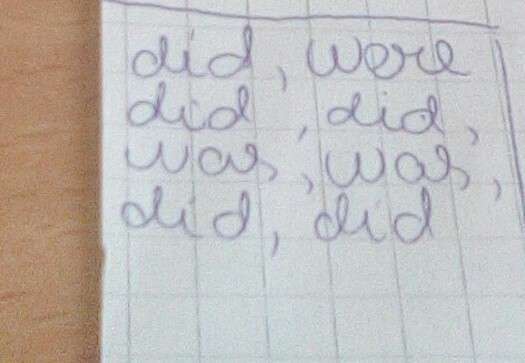 did, were
did, did,
was, was,
did, did